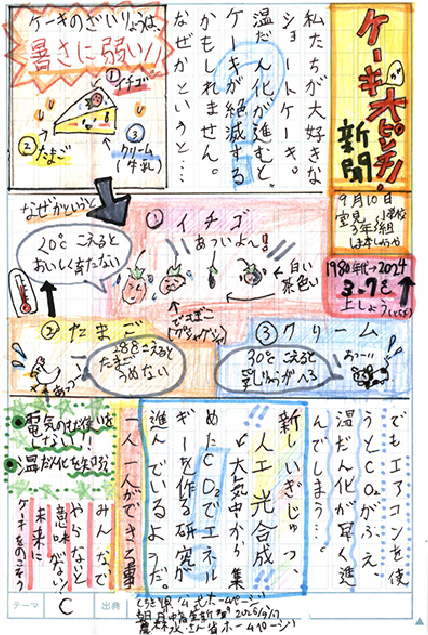 ケーキが大ピンチ!
新聞
9月10日
室見小学校
3年3組
1980年代→2024
3.7℃
上しょう
私たちが大好きな
ショートケーキ。
温だん化が進むと、
ケーキが絶滅する
かもしれません。
なぜかというと…
?
ケーキのざいりょうは、
暑さに弱い!!
①イチゴ
②たまご
③クリーム
(牛乳)
なぜかというと
①イチゴ
あついよ〜!
20℃こえると
おいしく育たない
白い
茶色い
②たまご
28℃こえると
たまご
うめない
あつ〜
③クリーム
30℃こえると
乳しゅうがへる
あつ〜!!
でもエアコンを使
うとCO₂がふえ、
温だん化が早く進
んでしまう…。
新しいぎじゅつ、
人工光合成
大気中から集
めたCO₂でエネル
ギーを作る研究が
進んでいるようだ。
一人一人ができる事
電気のむだ使いを
しない!!
温だん化を知ろう
みんなで
やらないと
意味がない!
未来に
ケーキをのこそう
テーマ
C
出典